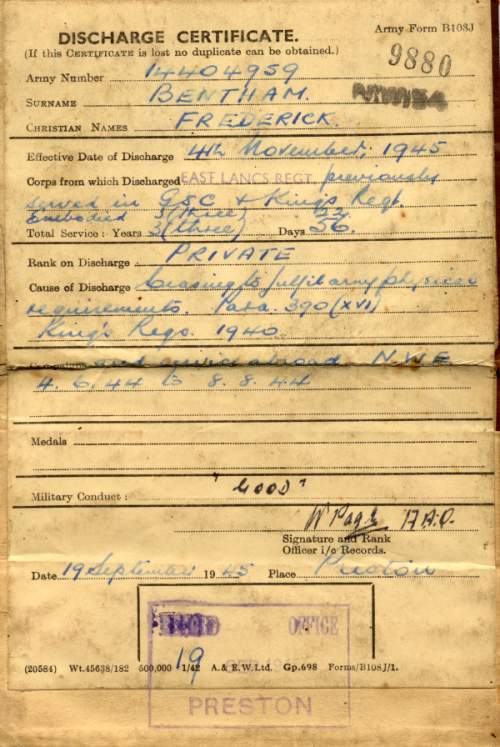 Army Form B108J
DISCHARGE CERTIFICATE.
(If this CERTIFICATE is lost no duplicate can be obtained.)
9880
Army Number 14404959
SURNAME BENTHAM.
CHRISTIAN NAMES FREDERICK.
Effective Date of Discharge 4th November, 1945
Corps from which Discharged EAST LANCS REGT. previously
served in GSC & Kings Regt.
Embodied 3 (three)
Total Service: Years 3 (three) Days 56.
Rank on Discharge PRIVATE
Cause of Discharge Ceasing to fulfil army physical
requirements. Para. 390 (XVI)
King's Regs. 1940
and service abroad N.W.E.
4. 6. 44 to 8. 8. 44
Medals
Military Conduct: "GOOD"
W Page A.O.
Signature and Rank
Officer i/c Records.
Date 19 September 1945 Place Preston
OFFICE
19
(20584) Wt.45638/182 500,000 1/42 A. & E.W.Ltd. Gp.698 Forms/B108J/1.
PRESTON